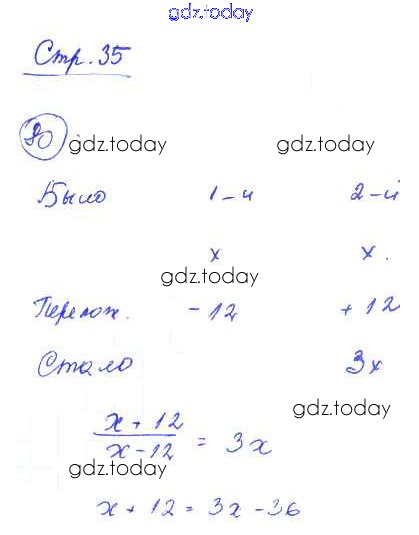 gdz.today
Стр. 35
80 gdz.today gdz.today
Было 1-й 2-й
x x.
gdz.today
Перелож. -12 +12
Стало 3x
gdz.today
x + 12
x - 12 = 3x
gdz.today
x + 12 = 3x - 36